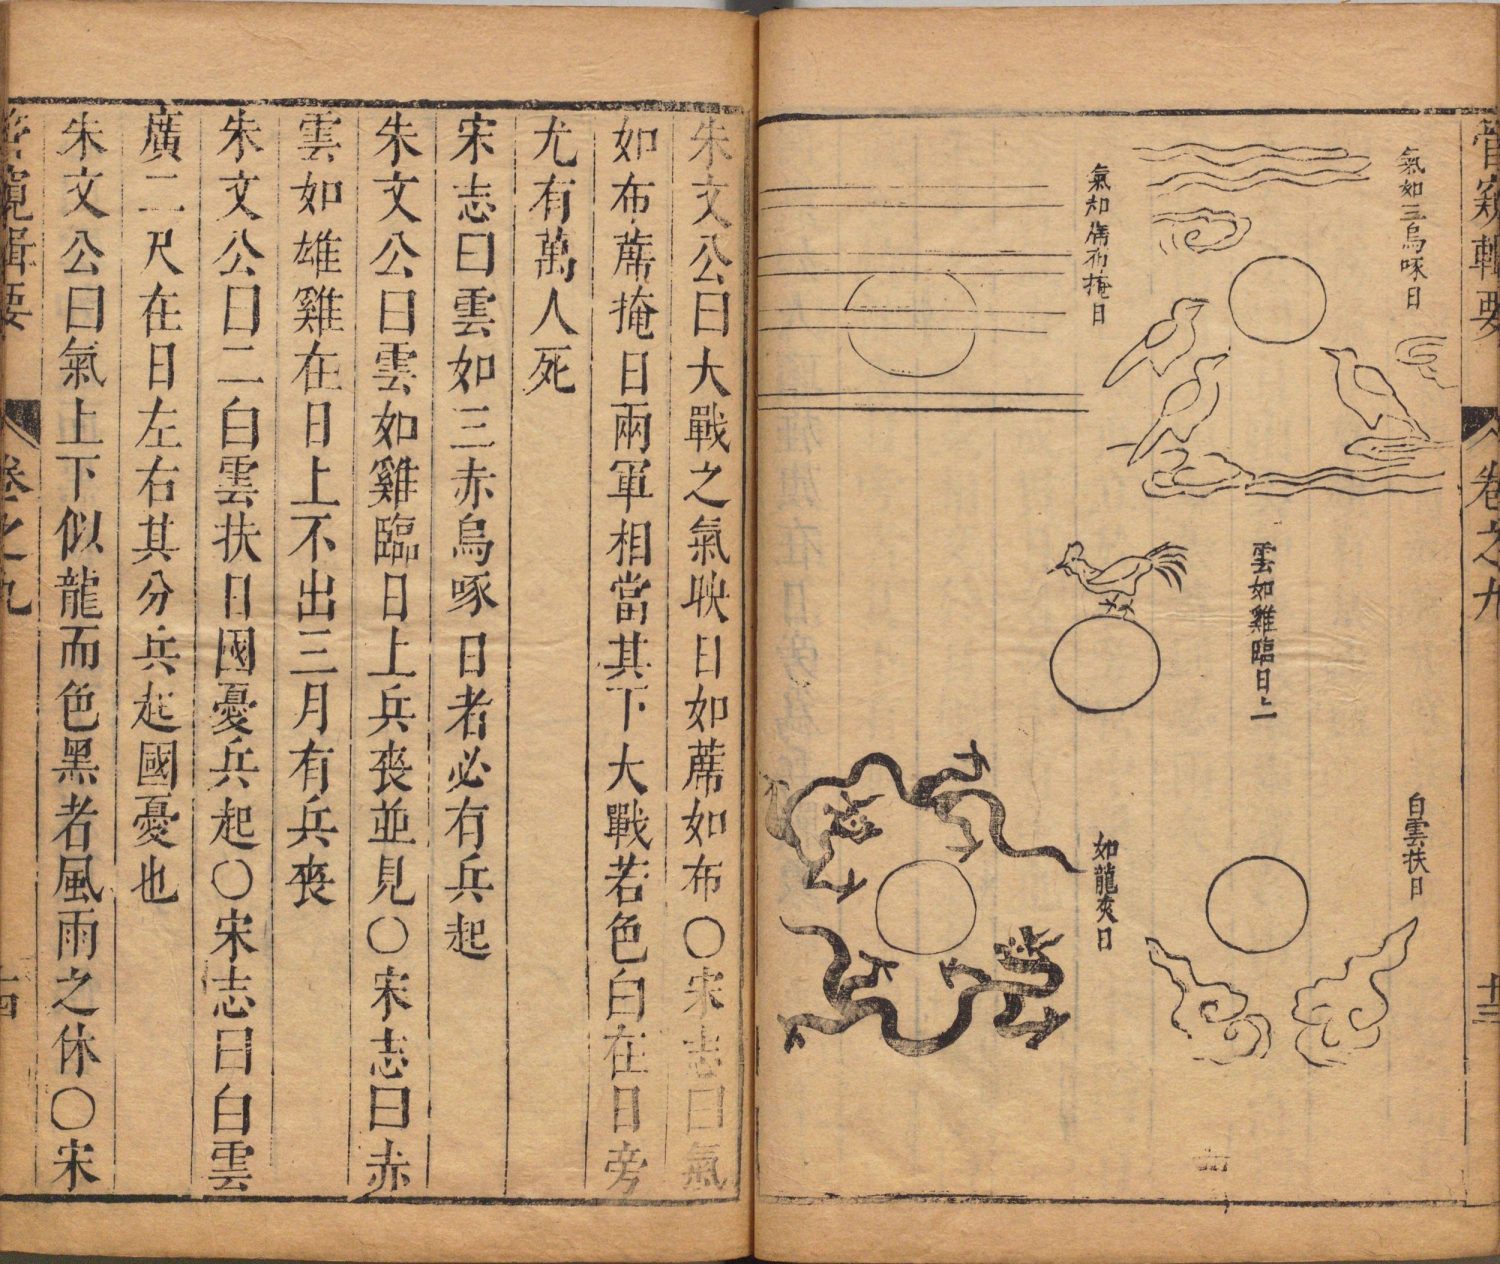 管窺輯要
卷之九
十三
氣如三烏啄日
氣如席布掩日
雲如雞臨日上
白雲扶日
如龍夾日
朱文公曰大戰之氣映日如蓆如布〇宋志曰氣
如布蓆掩日兩軍相當其下大戰若色白在日旁
尤有萬人死
宋志曰雲如三赤烏啄日者必有兵起
朱文公曰雲如雞臨日上兵喪並見〇宋志曰赤
雲如雄雞在日上不出三月有兵喪
朱文公曰二白雲扶日國憂兵起〇宋志曰白雲
廣二尺在日左右其分兵起國憂也
朱文公曰氣上下似龍而色黑者風雨之休〇宋
管窺輯要
卷之九
十四